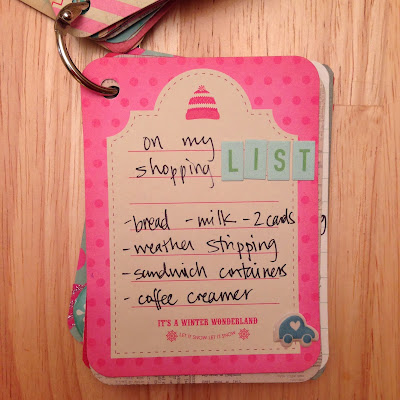 on my
shopping LIST
- bread - milk - 2 cards
- weather stripping
- sandwich containers
- coffee creamer
IT'S A WINTER WONDERLAND
LET IT SNOW LET IT SNOW